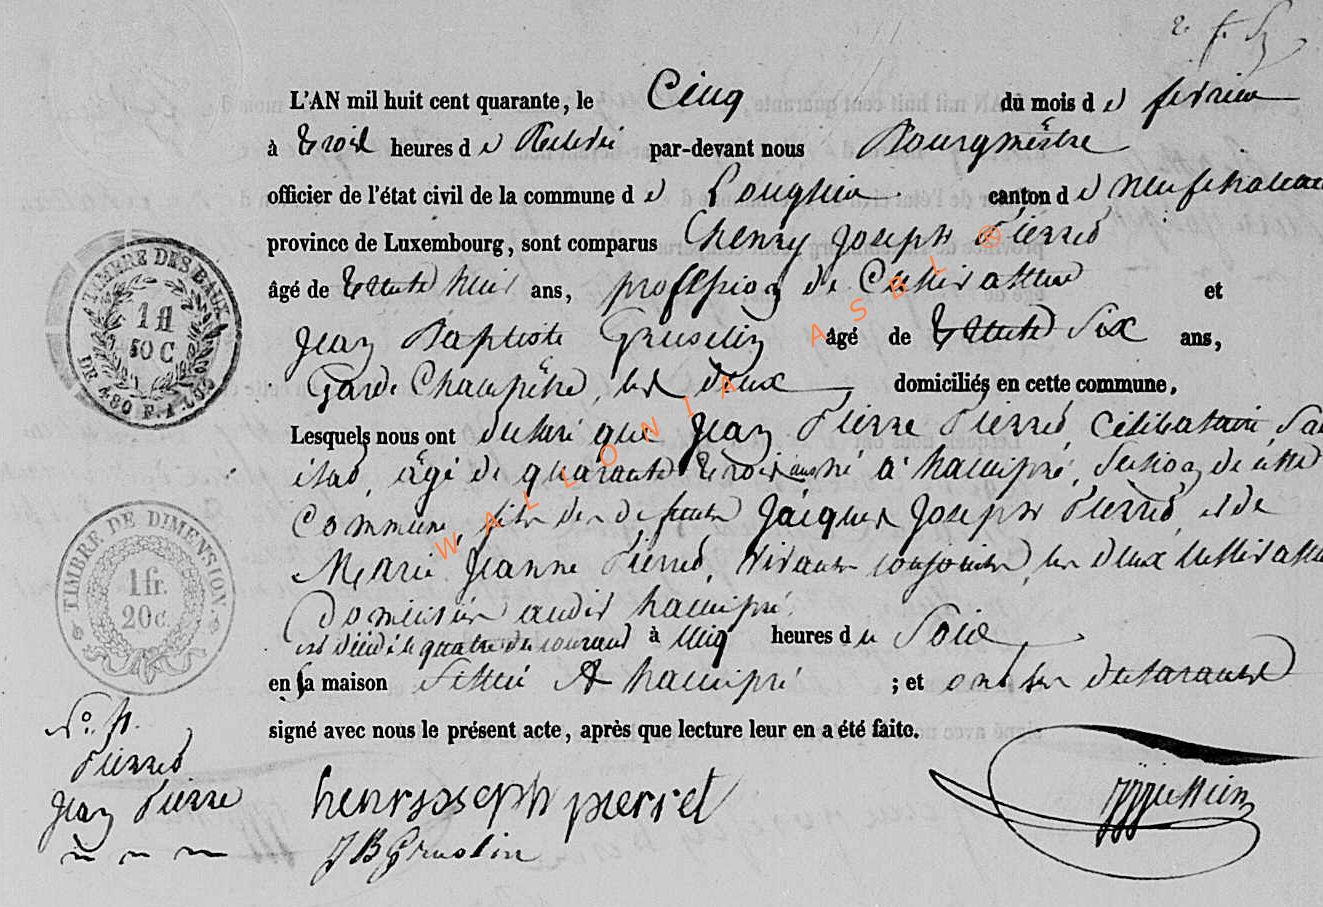 L'AN mil huit cent quarante, le Cinq du mois de fevrier
à trois heures de Relevée par-devant nous Bourgmestre
officier de l'état civil de la commune de Longlier canton de Neufchateau
province de Luxembourg, sont comparus henry joseph Pierret
âgé de trente huit ans, profession de Cultivateur et
Jean Baptiste Gruslin âgé de trente Six ans,
Garde Champêtre, les deux domiciliés en cette commune,
Lesquels nous ont déclaré que Jean Pierre Pierret, Célibataire, San
état, âgé de quarante trois ans né a hamipré, Section de cette
Commune, fils des defunts Jacques Joseph Pierret, et de
Marie Jeanne Pierret, vivants conjoints, les deux cultivateu
Domiciliés audit hamipré,
est décédé le quatre du courant à cinq heures du Soir
en sa maison Située A hamipré ; et ont les declarants
signé avec nous le présent acte, après que lecture leur en a été faite.
TIMBRE DES
1 fl
50 C
TIMBRE DE DIMENSION.
1 fr.
20 c.
N° 4.
Pierret
Jean Pierre
henri joseph pierret
J B Gruslin
WALLONIA ASBL ®